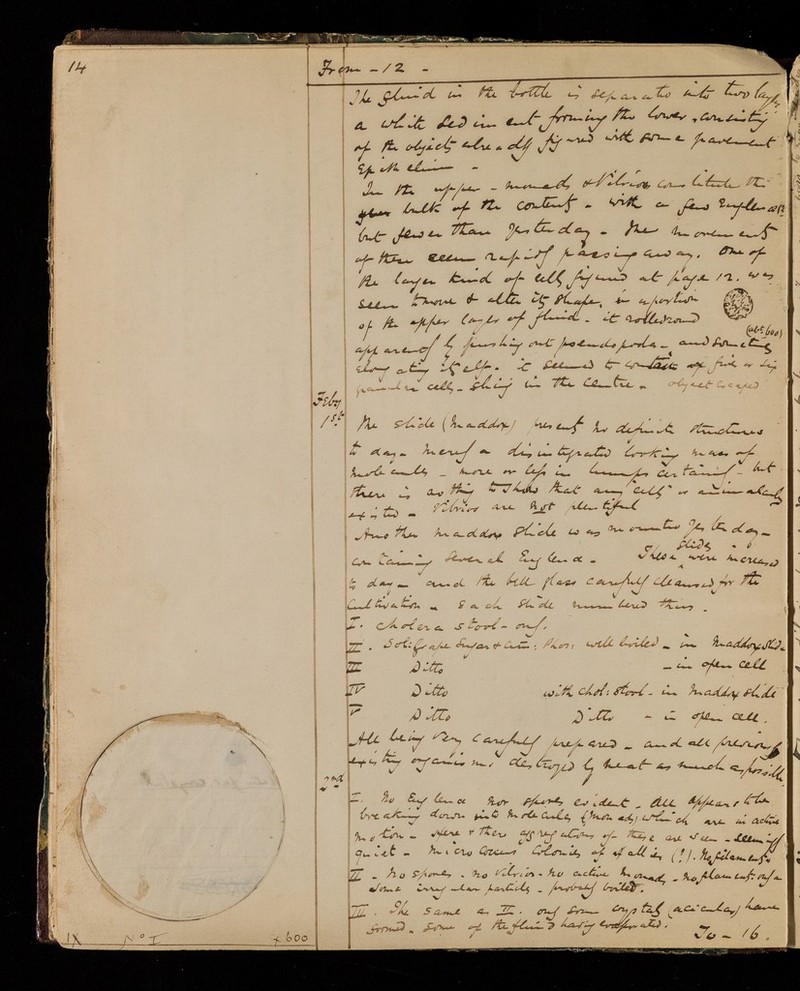 14
From - 12 -
The fluid in the bottle is separated into two layers
a white sediment forming the lower, consisting
of the objects already figured with some pavement
Epithelium -
In the upper - monads & Vibrios constitute the
bulk of the contents - with a few
but fewer than yesterday - The movements
of these seem rapidly passing away. One of
the larger kind of cells figured at page 12. was
seen to move & alter its shape, in a portion
of the upper layer of fluid - it rolled round
apparently by pushing out pseudopodia - and sometimes
along itself. it seemed to contain five or six
granular cells - in the centre - object escaped
Feby
1st
The slide (Maddox) presents no definite structures
to day - merely a disintegrated looking mass of
molecules - more or less in lumps certainly - but
there is nothing to show that any "cells" or animalculy
existed - Vibrios are not plentiful
Another Maddox slide was mounted yesterday -
containing several - These slides were increased
to day - and the bell glass carefully cleansed for the
Cultivation - Each slide numbered thus.
I. Cholera stool - only.
II. Sol: Grape Sugar & : Phos: well boiled - in Maddox Slide
III Ditto - in open cell
IV Ditto with chol: stool - in Maddox slide
V Ditto Ditto - in open cell.
All being very carefully prepared - and all previously
existing organisms destroyed by heat as much as possible
2nd
I. No nor spores evident. All appears to be
breaking down into molecules (monads) which are in active
motion - Here & there aggregations of these are seen - seemingly
quiet - Micrococcus Colonies of (?). No filaments
II - No spores - no Vibrios - no active monads - no filaments: only a
some irregular particles - probably boiled.
III. The same as II. only some crystals (acicular) have
formed - some of the fluid having evaporated.
To - 16.
IX No I × 600